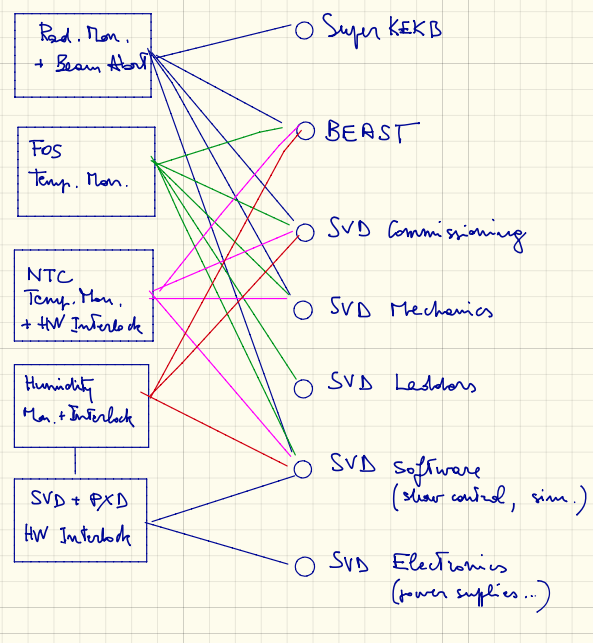 Rad. Mon.
+ Beam Abort
FOS
Temp. Mon.
NTC
Temp. Mon.
+ HW Interlock
Humidity
Mon. + Interlock
SVD + PXD
HW Interlock
Super KEKB
BEAST
SVD Commissioning
SVD Mechanics
SVD Ladders
SVD Software
(slow control, sim.)
SVD Electronics
(power supplies...)